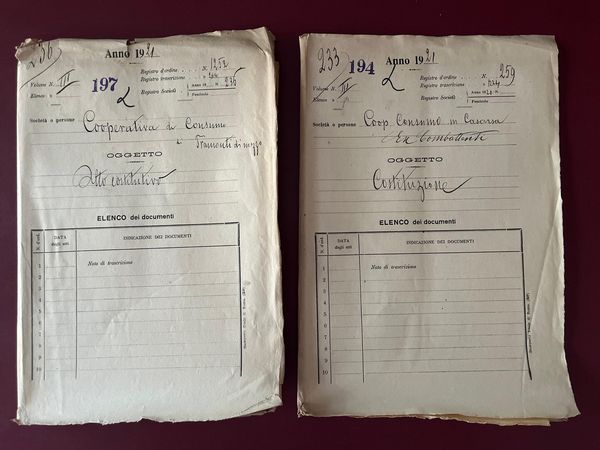 236
Anno 1921
Volume N. III
Elenco »
197
Registro d'ordine N. 1252
Registro trascrizione » 244
Registro Società Anno 19 N. 236
Fascicolo
Società o persone Cooperativa di Consumo
Tramonti di mezzo
OGGETTO
Atto costitutivo
ELENCO dei documenti
N. d'ord.
DATA degli atti
INDICAZIONE DEI DOCUMENTI
1 Nota di trascrizione
2
3
4
5
6
7
8
9
10
233
Anno 1921
Volume N. III
Elenco »
194
Registro d'ordine N. 259
Registro trascrizione » 234
Registro Società Anno 1920 N.
Fascicolo
Società o persone Coop. Consumo in Casarsa
Ex Combattenti
OGGETTO
Costituzione
ELENCO dei documenti
N. d'ord.
DATA degli atti
INDICAZIONE DEI DOCUMENTI
1 Nota di trascrizione
2
3
4
5
6
7
8
9
10